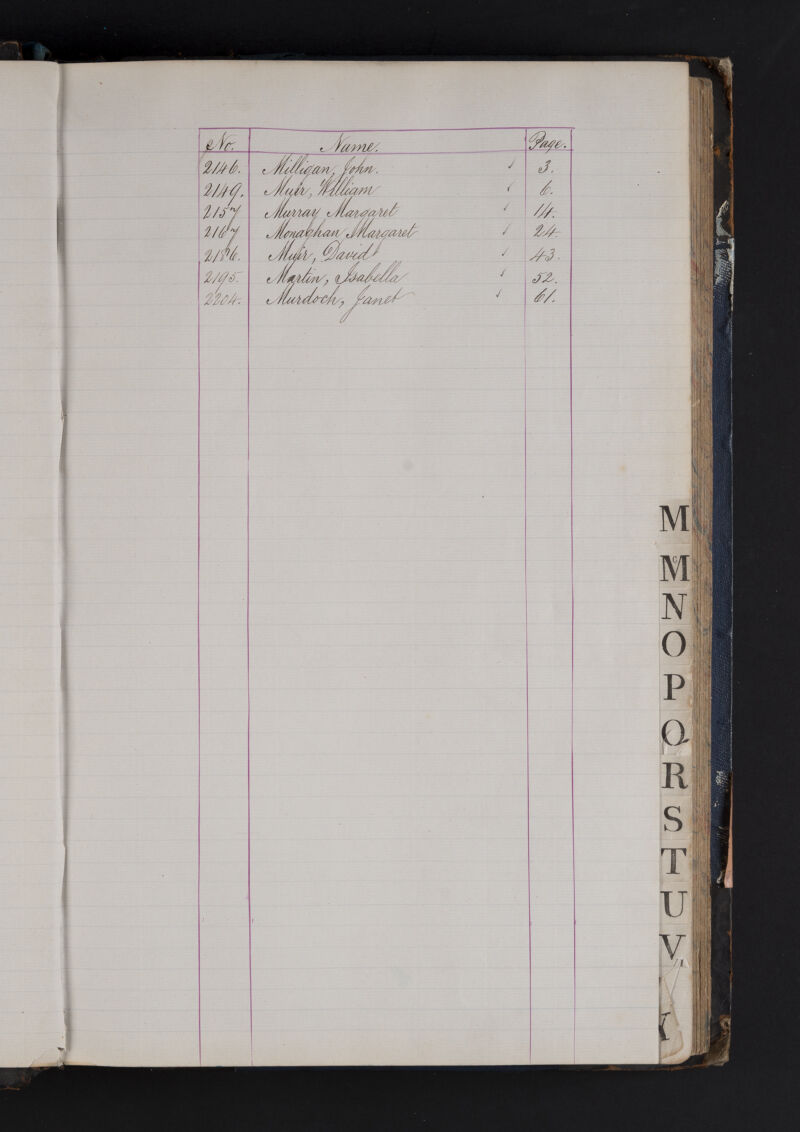 No. Name. Page.
2146. Milligan, John. 3.
2149. Muir, William 6.
2157 Murray Margaret 14.
2167 Monaghan, Margaret 24
2186. Muir, David 43.
2195. Martin, Isabella 52.
2204. Murdoch, Janet 61.
M
McM
N
O
P
Q
R
S
T
U
V
Y